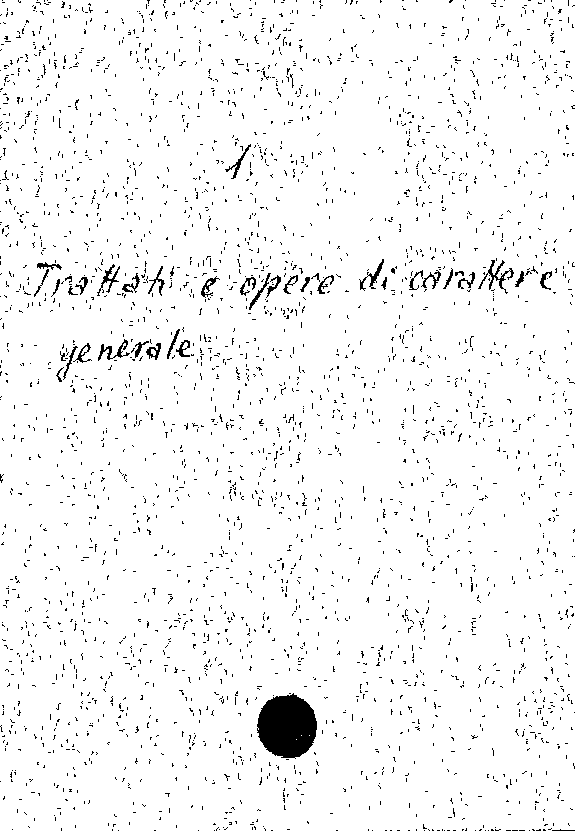 1.
Trattati e opere di carattere
generale